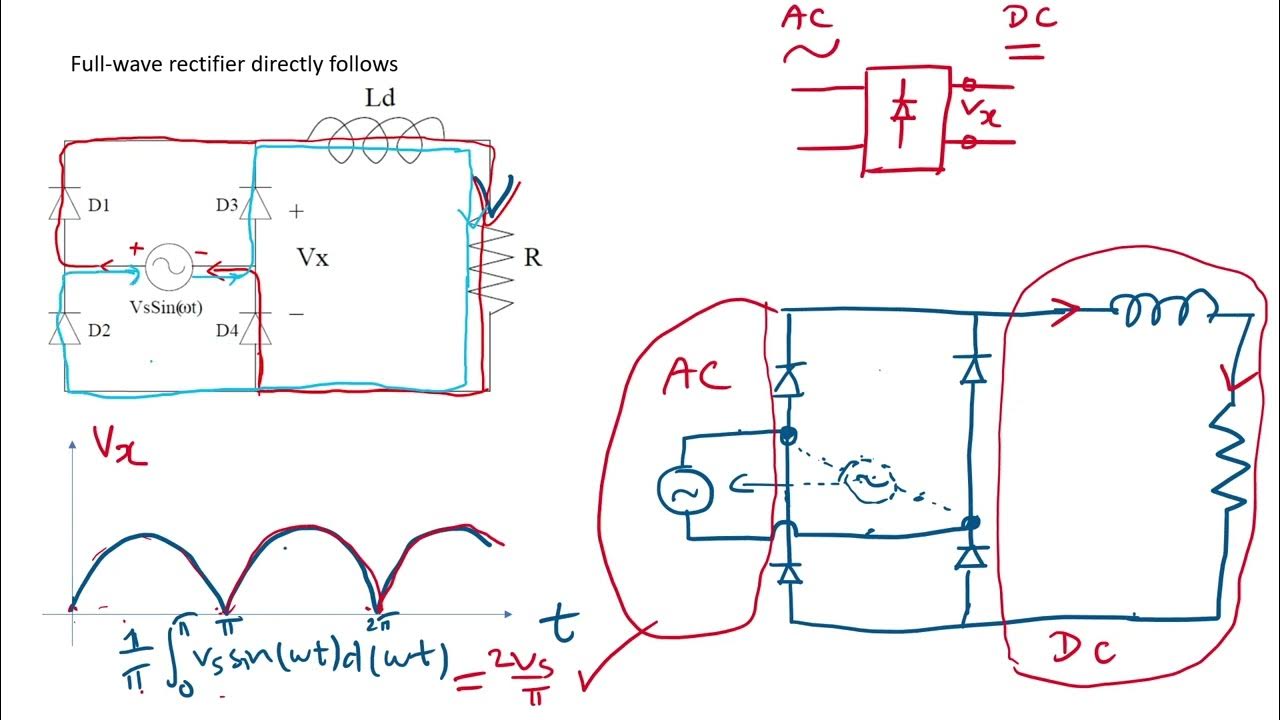 AC
DC
Full-wave rectifier directly follows
~
=
Ld
Vx
D1
D3
+
+
-
Vx
R
VsSin(ωt)
−
D2
D4
AC
Vx
~
~
π
2π
t
1/π ∫₀^π Vs sin(ωt)d(ωt) = 2Vs/π ✓
DC